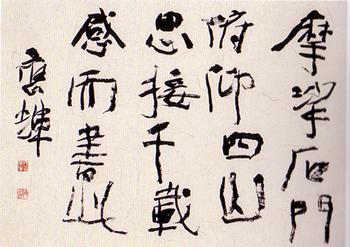 摩挲石門
俯仰四山
思接千載
感而書此